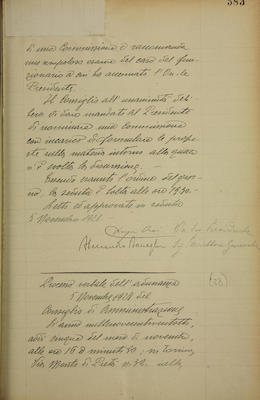 383
di una Commissione e raccomanda
uno scrupoloso esame del caso del fun-
zionario a cui ha accennato l'On.le
Presidente.
Il Consiglio all'unanimità deli-
bera di dare mandato al Presidente
di nominare una commissione
con incarico di formulare le propo-
ste sulla materia intorno alla quale
si è svolta la discussione.
Essendo esaurito l'ordine del gior-
no, la seduta è tolta alle ore 19.30.
Letto ed approvato in seduta
5 Novembre 1928
Il Presidente
Alessandro
Processo verbale dell'adunanza
5 Novembre 1928 del
Consiglio di Amministrazione
L'anno millenovecentoventotto,
addì cinque del mese di novembre,
alle ore 16 e minuti 30, in Torino,
Via Monte di Pietà n. 32, nella